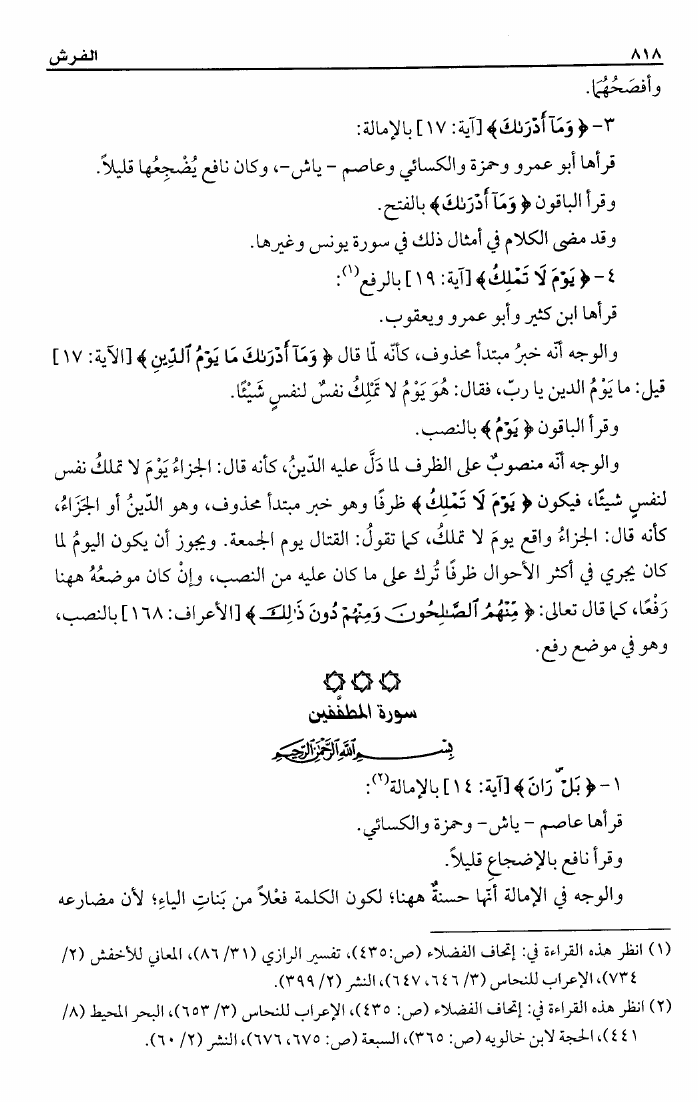 ٨١٨ الفرش
وأفصَحُهُمَا.
٣- ﴿ وَمَآ أَدْرَىٰكَ ﴾ [آية: ١٧] بالإمالة:
قرأها أبو عمرو وحمزة والكسائي وعاصم – ياش–، وكان نافع يُضْجِعُها قليلاً.
وقرأ الباقون ﴿ وَمَآ أَدْرَىٰكَ ﴾ بالفتح.
وقد مضى الكلام في أمثال ذلك في سورة يونس وغيرها.
٤- ﴿ يَوْمَ لَا تَمْلِكُ ﴾ [آية: ١٩] بالرفع(١):
قرأها ابن كثير وأبو عمرو ويعقوب.
والوجه أنّه خبرُ مبتدأ محذوف، كأنّه لمّا قال ﴿ وَمَآ أَدْرَىٰكَ مَا يَوْمُ ٱلدِّينِ ﴾ [الآية: ١٧]
قيل: ما يَوْمُ الدين يا ربّ، فقال: هُوَ يَوْمُ لا تَمْلِكُ نفسٌ لنفسٍ شَيْئًا.
وقرأ الباقون ﴿ يَوْمُ ﴾ بالنصب.
والوجه أنّه منصوبٌ على الظرف لما دَلَّ عليه الدّينُ، كأنه قال: الجزاءُ يَوْمَ لا تملكُ نفس
لنفسٍ شيئًا، فيكون ﴿ يَوْمَ لَا تَمْلِكُ ﴾ ظرفًا وهو خبر مبتدأ محذوف، وهو الدّينُ أو الجَزَاءُ،
كأنه قال: الجزاءُ واقع يومَ لا تملكُ، كما تقولُ: القتال يوم الجمعة. ويجوز أن يكون اليومُ لما
كان يجري في أكثر الأحوال ظرفًا تُرك على ما كان عليه من النصب، وإنْ كان موضعُهُ ههنا
رَفْعًا، كما قال تعالى: ﴿ مِّنْهُمُ ٱلصَّـٰلِحُونَ وَمِنْهُمْ دُونَ ذَٰلِكَ ﴾ [الأعراف: ١٦٨] بالنصب،
وهو في موضع رفع.
سورة المطفَّفين
بِسْمِ ٱللَّهِ ٱلرَّحْمَـٰنِ ٱلرَّحِيمِ
١- ﴿ بَلْ ۜ رَانَ ﴾ [آية: ١٤] بالإمالة(٢):
قرأها عاصم – ياش– وحمزة والكسائي.
وقرأ نافع بالإضجاعِ قليلاً.
والوجه في الإمالة أنّها حسنةٌ ههنا؛ لكون الكلمة فعْلاً من بَناتِ الياءِ؛ لأن مضارعه
(١) انظر هذه القراءة في: إتحاف الفضلاء (ص:٤٣٥)، تفسير الرازي (٣١/ ٨٦)، المعاني للأخفش (٢/
٧٣٤)، الإعراب للنحاس (٣/ ٦٤٦، ٦٤٧)، النشر (٢/ ٣٩٩).
(٢) انظر هذه القراءة في: إتحاف الفضلاء (ص: ٤٣٥)، الإعراب للنحاس (٣/ ٦٥٣)، البحر المحيط (٨/
٤٤١)، الحجة لابن خالويه (ص: ٣٦٥)، السبعة (ص: ٦٧٥، ٦٧٦)، النشر (٢/ ٦٠).